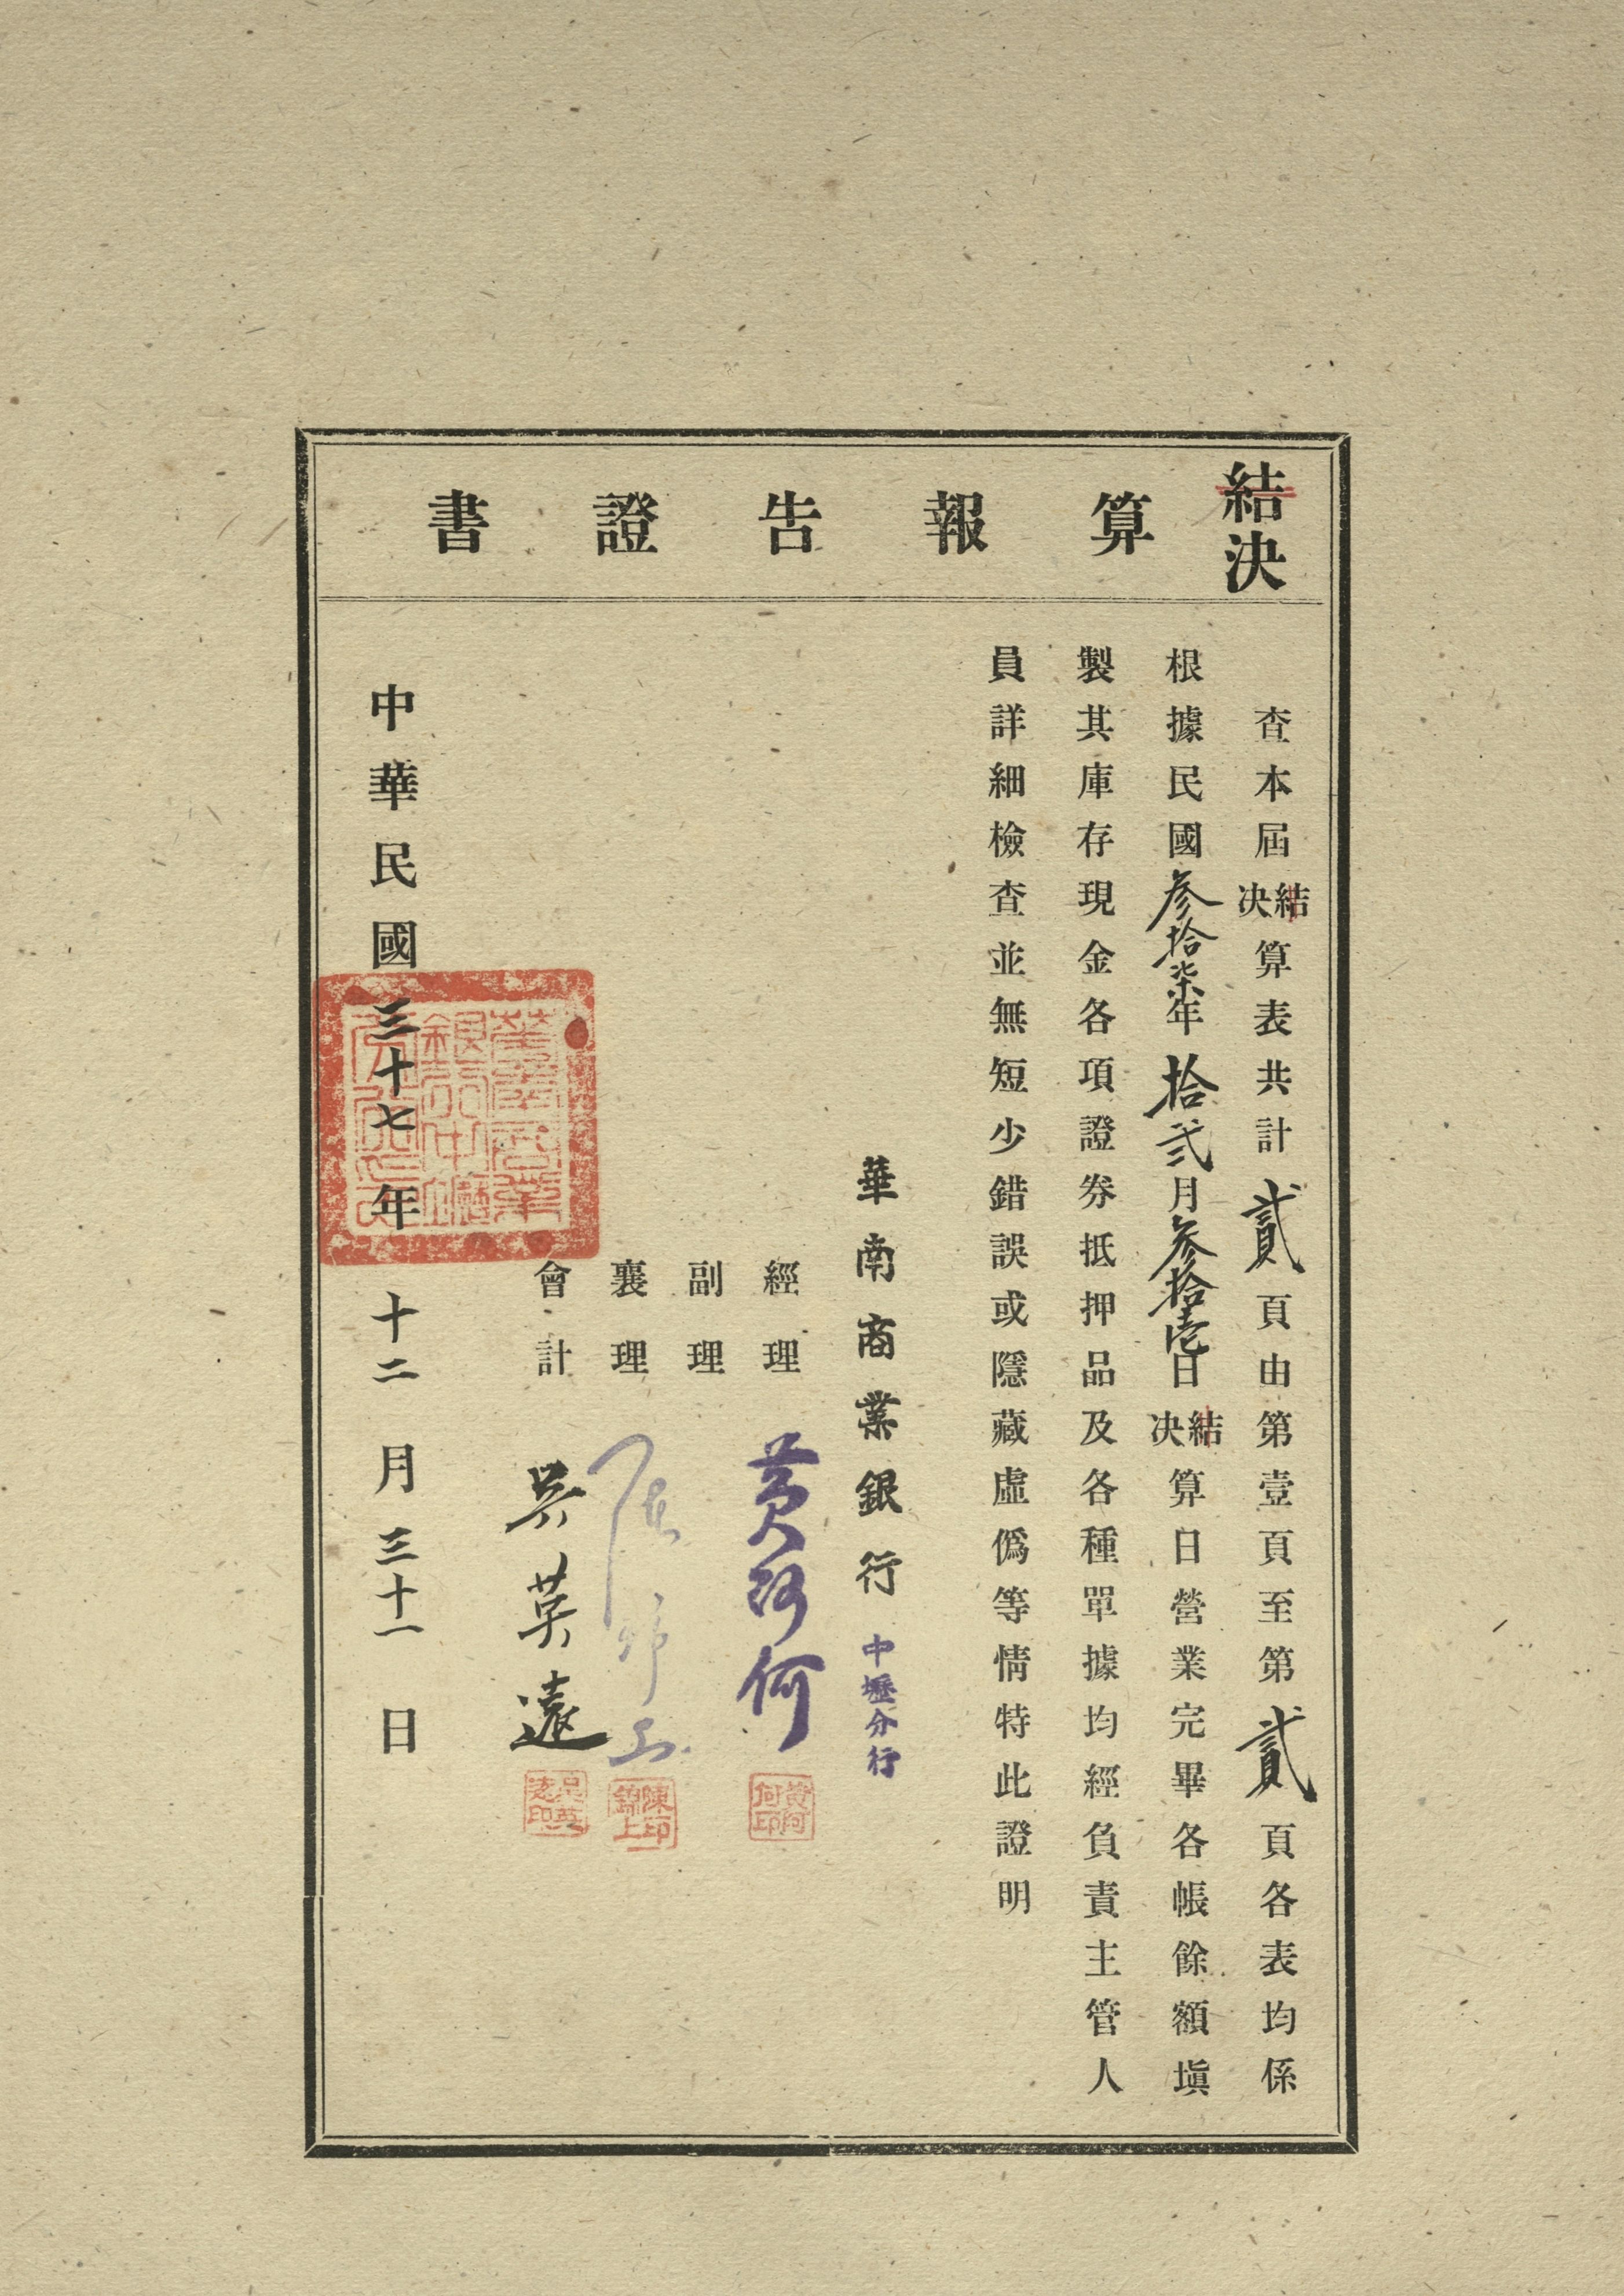 結決算報告證書
查本屆結決算表共計貳頁由第壹頁至第貳頁各表均係
根據民國參拾柒年拾弍月參拾壱日結決算日營業完畢各帳餘額塡
製其庫存現金各項證券抵押品及各種單據均經負責主管人
員詳細檢查並無短少錯誤或隱藏虛僞等情特此證明
華南商業銀行中壢分行
經理 黃阿何
黃阿何印
副理
襄理
陳印錦上
會計 吳英遠
吳英遠印
中華民國三十七年十二月三十一日